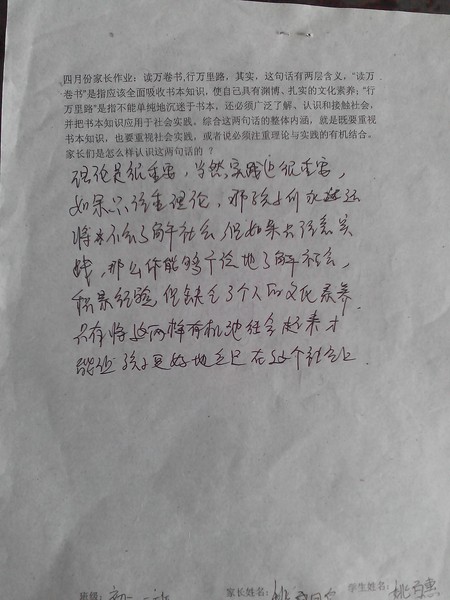 四月份家长作业：读万卷书,行万里路，其实，这句话有两层含义，“读万
卷书”是指应该全面吸收书本知识，使自己具有渊博、扎实的文化素养；“行
万里路”是指不能单纯地沉迷于书本，还必须广泛了解、认识和接触社会，
并把书本知识应用于社会实践。综合这两句话的整体内涵，就是既要重视
书本知识，也要重视社会实践，或者说必须注重理论与实践的有机结合。
家长们是怎么样认识这两句话的？
理论是很重要，当然实践也很重要，
如果只注重理论，那孩子们永远还
将来不会了解社会，但如果只注意实
践，那么你能够个位地了解社会，
积累经验，但缺乏了个人的文化素养
只有将这两样有机地结合起来才
能让孩子更好地立足在这个社会上.
班级：初一 班
家长姓名：姚
学生姓名：姚